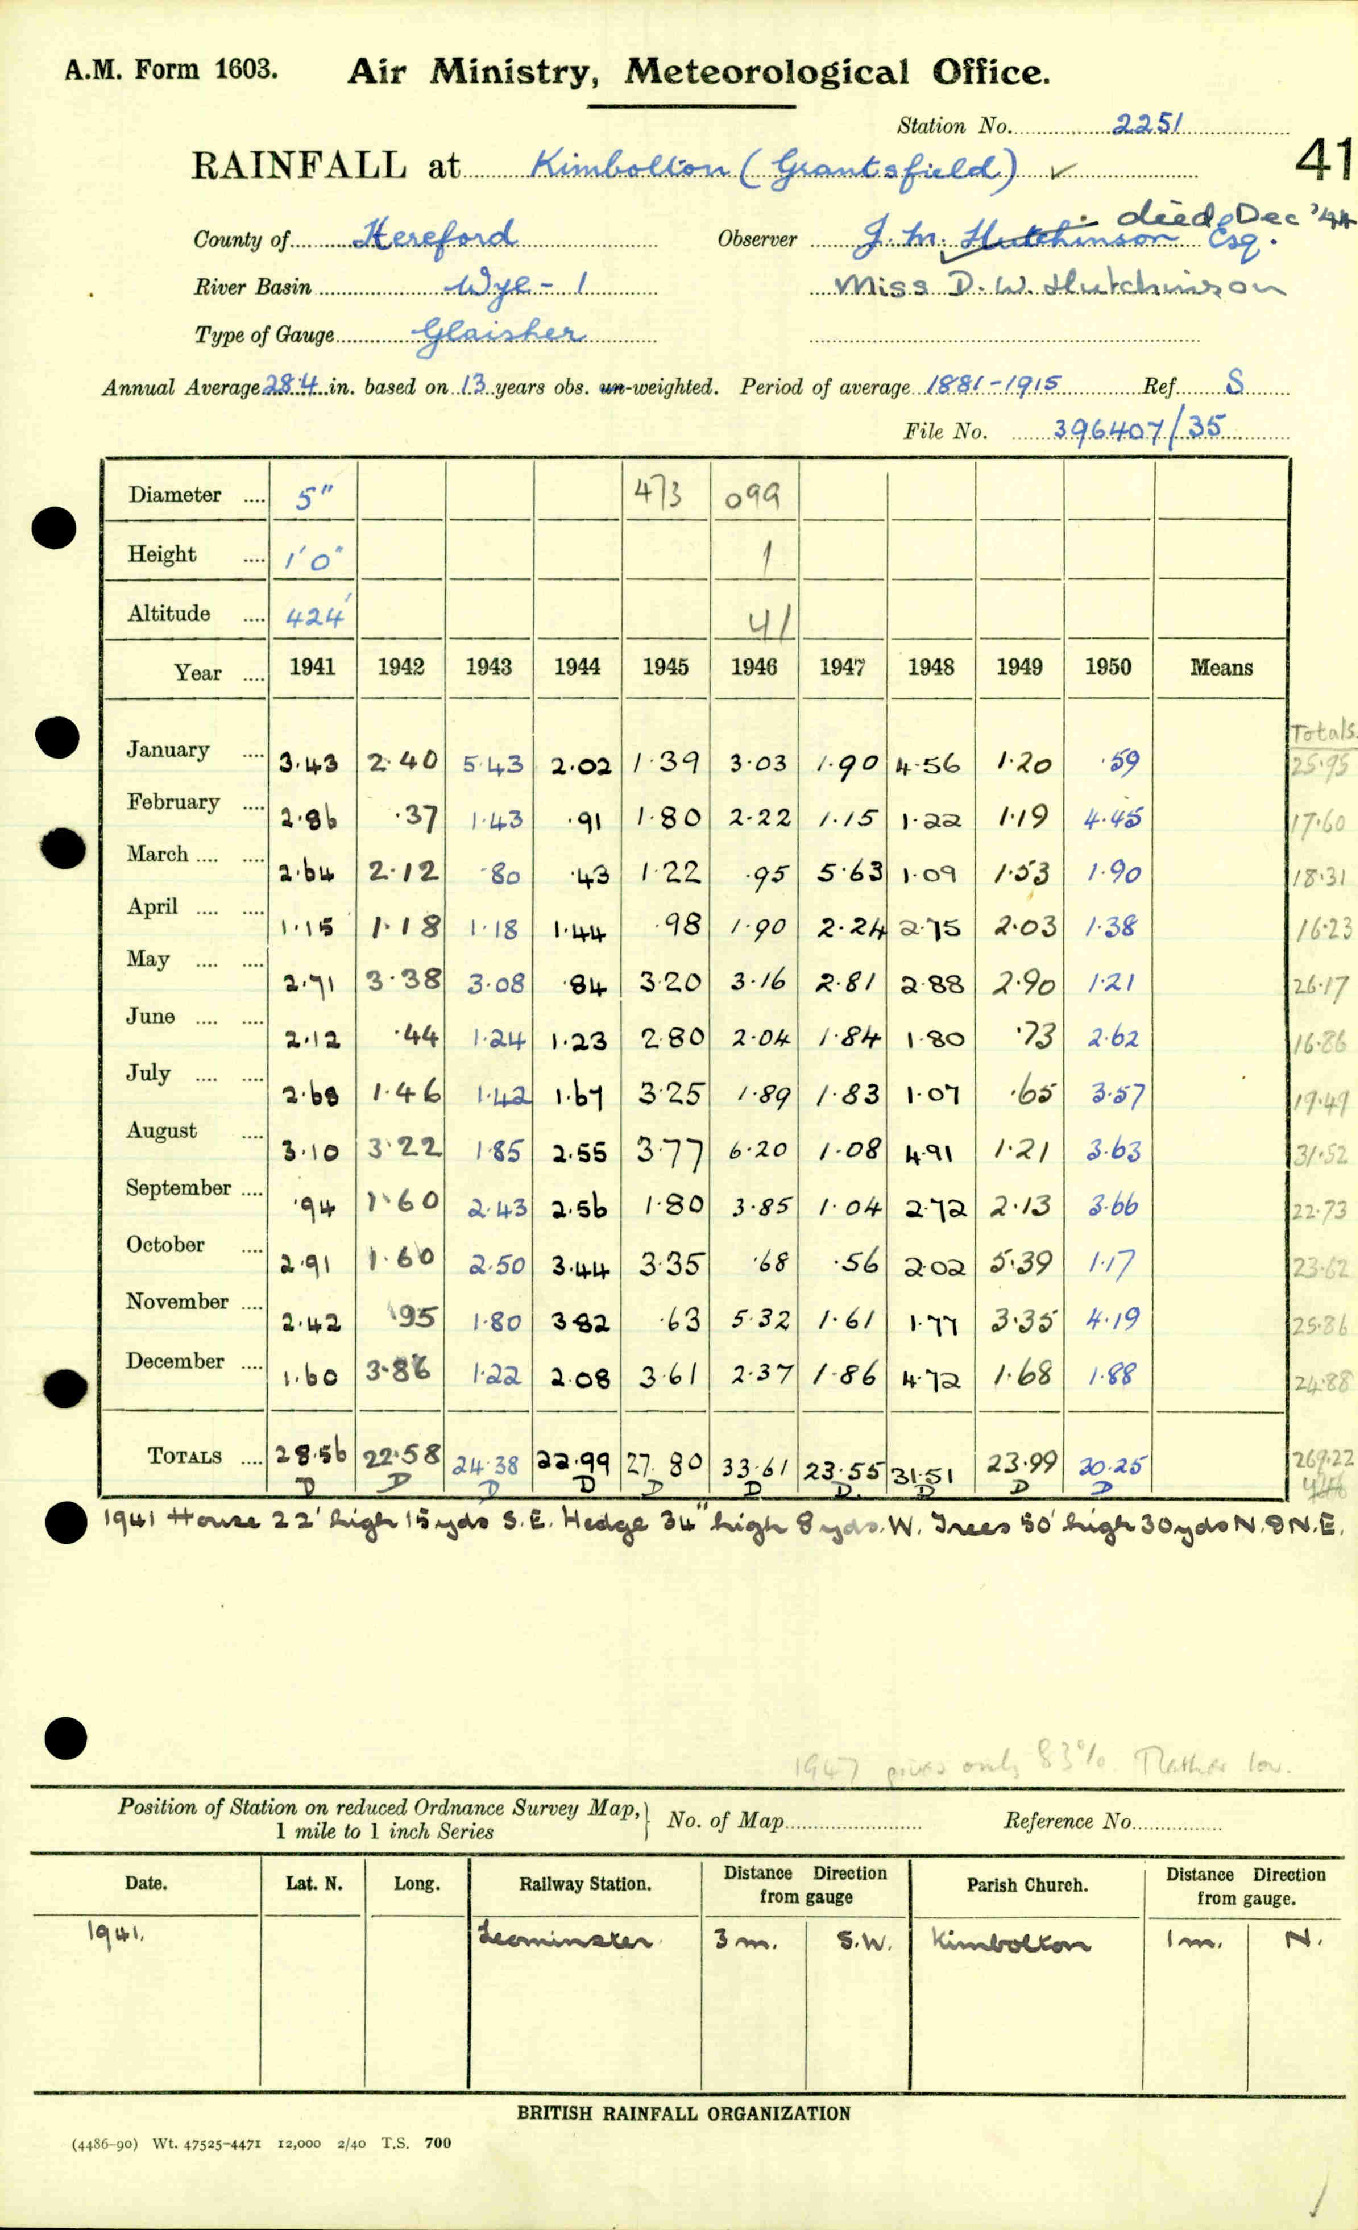 A.M. Form 1603. Air Ministry, Meteorological Office.
Station No. 2251
RAINFALL at Kimbolton (Grantsfield) ✓ 41
died Dec '44
County of Hereford Observer J. M. Hutchinson Esq.
River Basin Wye - 1 Miss D. W. Hutchinson
Type of Gauge Glaisher
Annual Average 28.4 in. based on 13 years obs. un-weighted. Period of average 1881-1915 Ref. S
File No. 396407/35
Diameter .... 5" 473 099
Height .... 1'0" 1
Altitude .... 424' 41
Year .... 1941 1942 1943 1944 1945 1946 1947 1948 1949 1950 Means
Totals.
January .... 3.43 2.40 5.43 2.02 1.39 3.03 1.90 4.56 1.20 .59 25.95
February .... 2.86 .37 1.43 .91 1.80 2.22 1.15 1.22 1.19 4.45 17.60
March .... .... 2.64 2.12 .80 .43 1.22 .95 5.63 1.09 1.53 1.90 18.31
April .... .... 1.15 1.18 1.18 1.44 .98 1.90 2.24 2.75 2.03 1.38 16.23
May .... .... 2.71 3.38 3.08 .84 3.20 3.16 2.81 2.88 2.90 1.21 26.17
June .... .... 2.12 .44 1.24 1.23 2.80 2.04 1.84 1.80 .73 2.62 16.86
July .... .... 2.68 1.46 1.42 1.67 3.25 1.89 1.83 1.07 .65 3.57 19.49
August .... 3.10 3.22 1.85 2.55 3.77 6.20 1.08 4.91 1.21 3.63 31.52
September .... .94 1.60 2.43 2.56 1.80 3.85 1.04 2.72 2.13 3.66 22.73
October .... 2.91 1.60 2.50 3.44 3.35 .68 .56 2.02 5.39 1.17 23.62
November .... 2.42 .95 1.80 3.82 .63 5.32 1.61 1.77 3.35 4.19 25.86
December .... 1.60 3.86 1.22 2.08 3.61 2.37 1.86 4.72 1.68 1.88 24.88
TOTALS .... 28.56 22.58 24.38 22.99 27.80 33.61 23.55 31.51 23.99 30.25 269.22
D D D D D D D. D D D
1941 House 22' high 15 yds S.E. Hedge 34" high 8 yds. W. Trees 50' high 30 yds N. & N.E.
1947 gives only 83%. Rather low.
Position of Station on reduced Ordnance Survey Map,} No. of Map Reference No.
1 mile to 1 inch Series
Date. Lat. N. Long. Railway Station. Distance Direction from gauge Parish Church. Distance Direction from gauge.
1941. Leominster 3 m. S.W. Kimbolton 1 m. N.
BRITISH RAINFALL ORGANIZATION
(4486-90) Wt. 47525-4471 12,000 2/40 T.S. 700